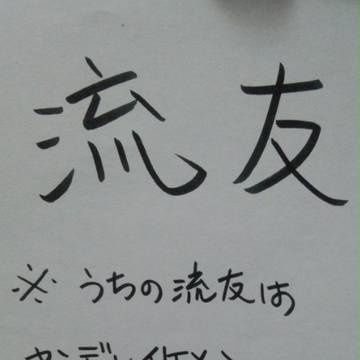 流友
※うちの流友は